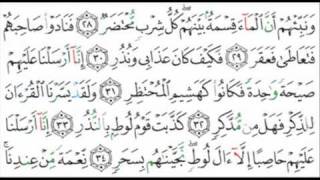 وَنَبِّئْهُمْ أَنَّ الْمَآءَ قِسْمَةٌۢ بَيْنَهُمْ كُلُّ شِرْبٍ مُّحْتَضَرٌ ﴿٢٨﴾ فَنَادَوْا۟ صَاحِبَهُمْ
فَتَعَاطَىٰ فَعَقَرَ ﴿٢٩﴾ فَكَيْفَ كَانَ عَذَابِى وَنُذُرِ ﴿٣٠﴾ إِنَّآ أَرْسَلْنَا عَلَيْهِمْ
صَيْحَةً وَٰحِدَةً فَكَانُوا۟ كَهَشِيمِ الْمُحْتَظِرِ ﴿٣١﴾ وَلَقَدْ يَسَّرْنَا الْقُرْءَانَ
لِلذِّكْرِ فَهَلْ مِن مُّدَّكِرٍ ﴿٣٢﴾ كَذَّبَتْ قَوْمُ لُوطٍۭ بِالنُّذُرِ ﴿٣٣﴾ إِنَّآ أَرْسَلْنَا
عَلَيْهِمْ حَاصِبًا إِلَّآ ءَالَ لُوطٍ نَّجَّيْنَٰهُم بِسَحَرٍ ﴿٣٤﴾ نِّعْمَةً مِّنْ عِندِنَا